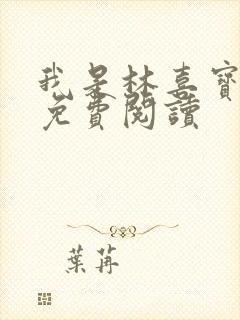 我是林喜寶
免費閱讀
葉苒